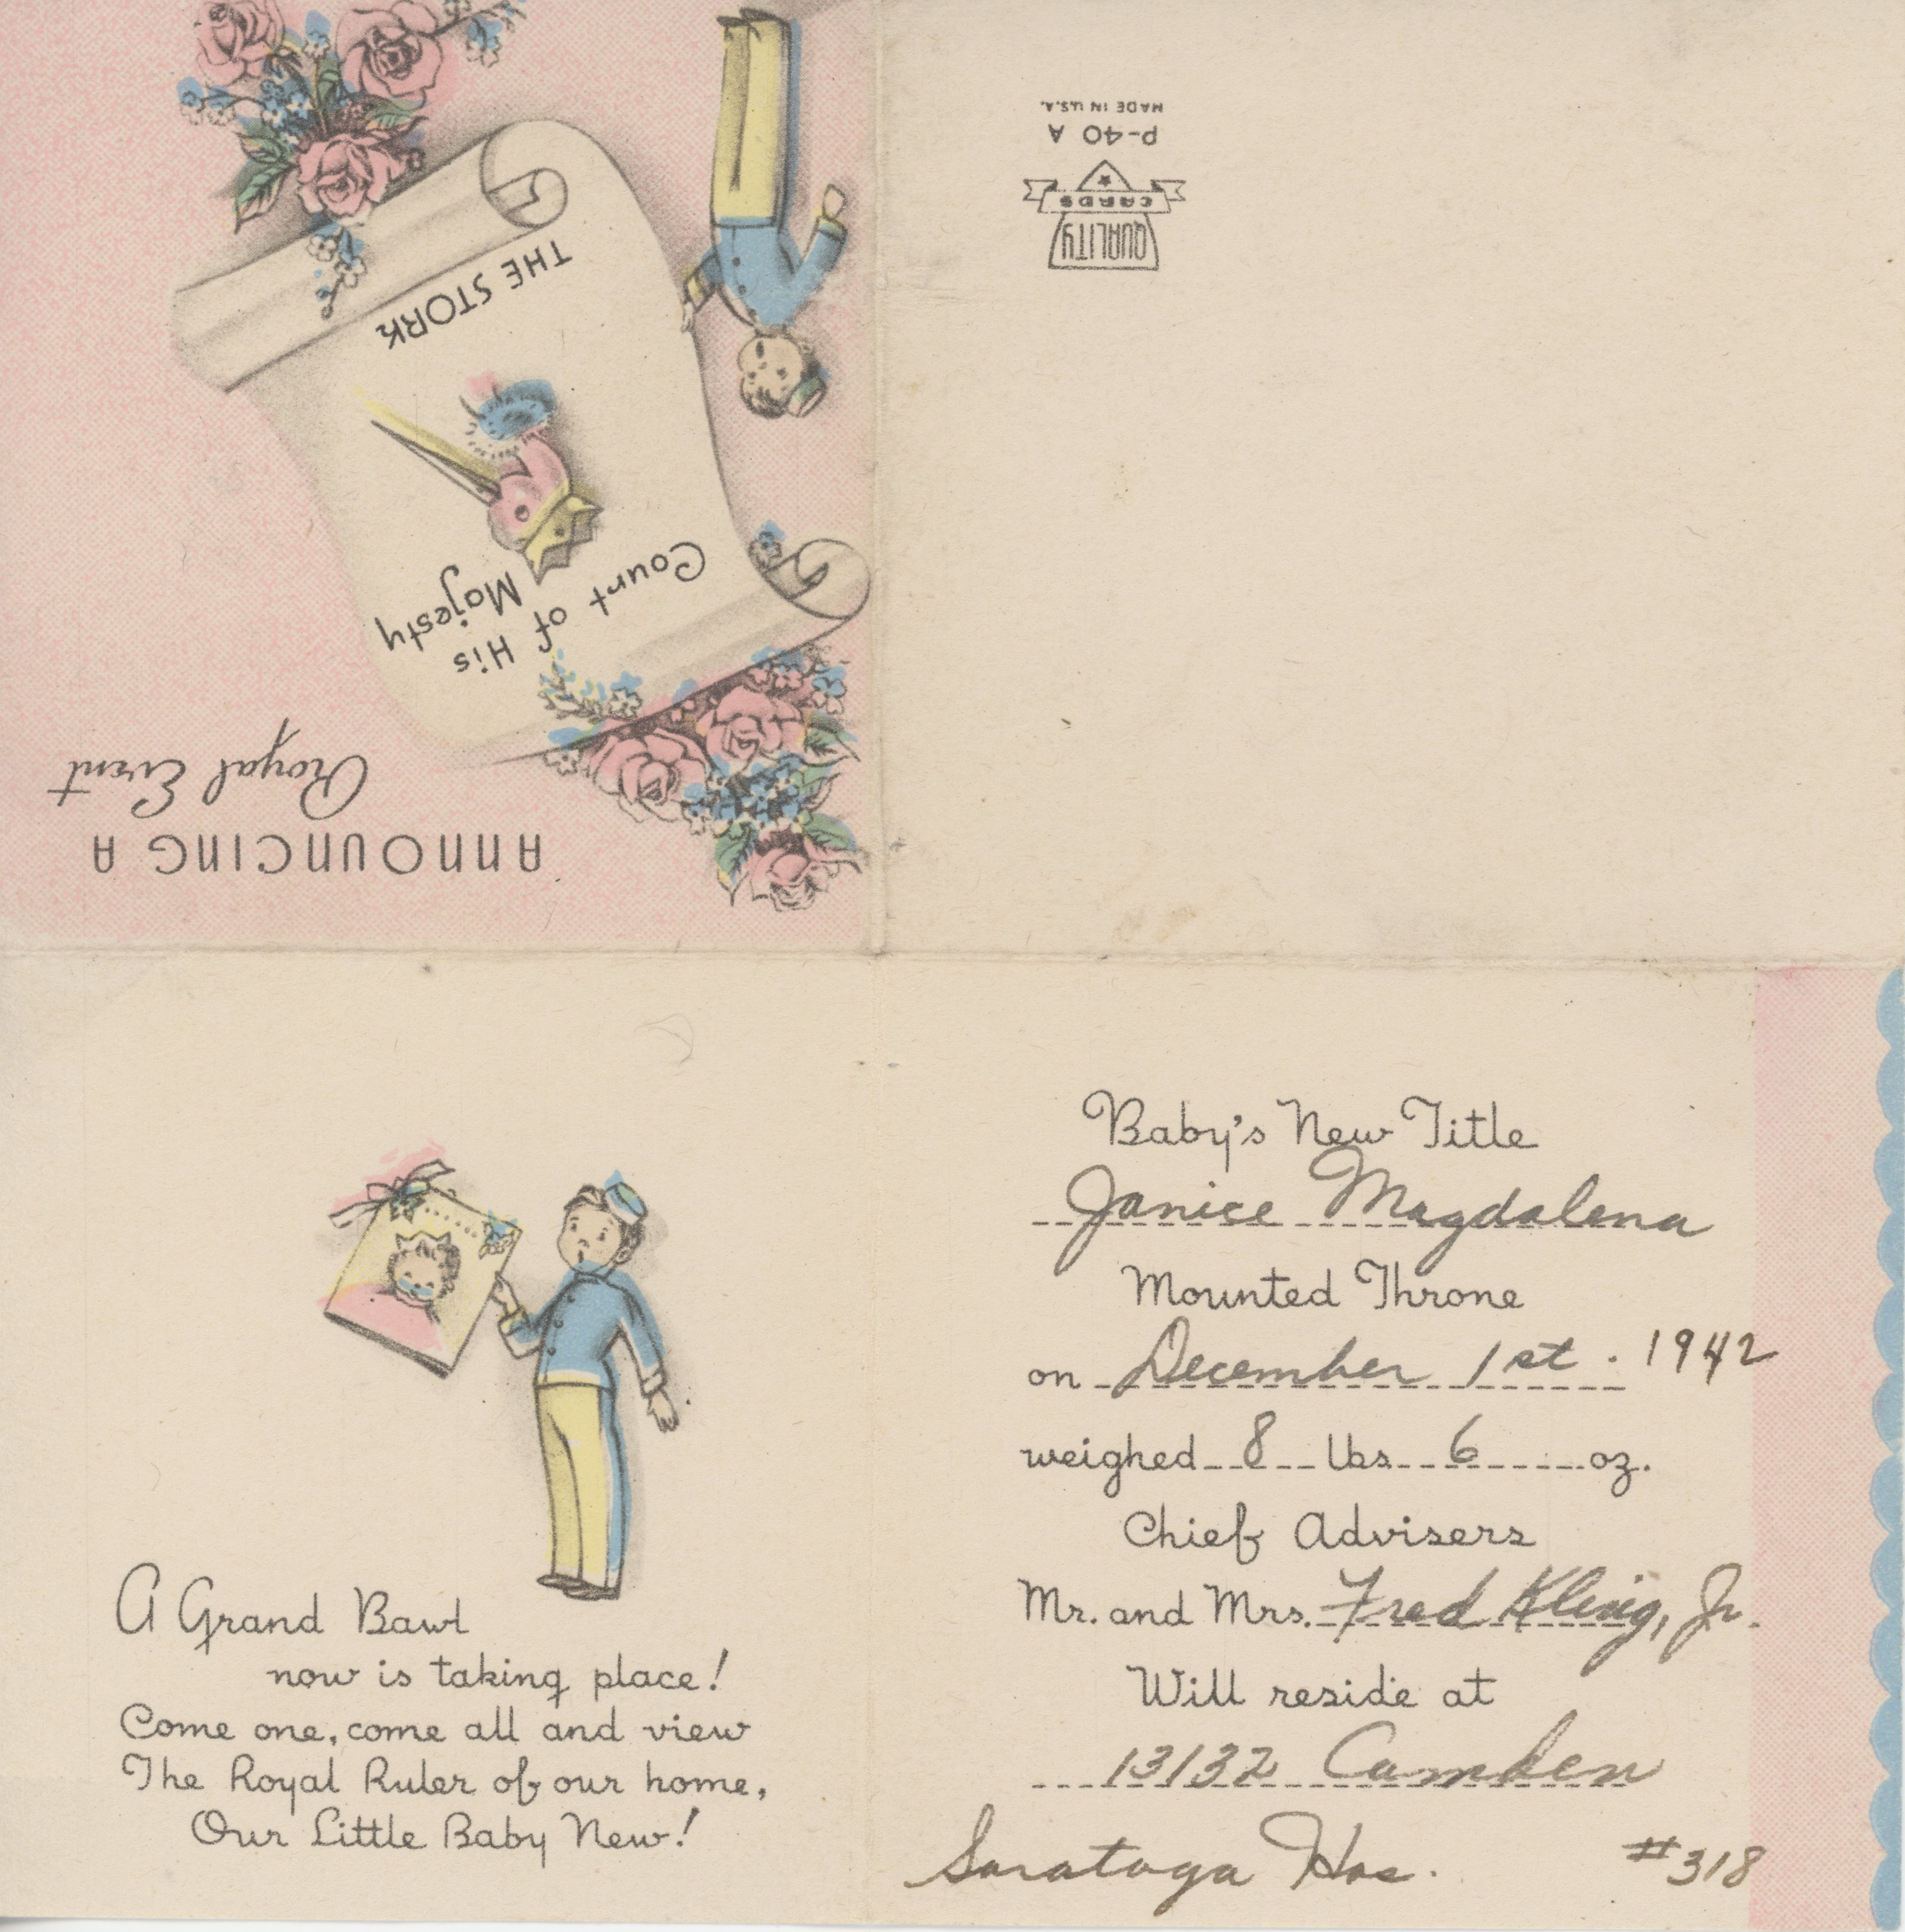 ANNOUNCING A
Royal Event
His
Majesty
Count of
THE STORK
QUALITY
CARDS
P-40 A
MADE IN U.S.A.
A Grand Bawl
now is taking place!
Come one, come all and view
The Royal Ruler of our home,
Our Little Baby New!
Baby's New Title
Janice Magdalena
Mounted Throne
on December 1st. 1942
weighed 8 lbs 6 oz.
Chief Advisers
Mr. and Mrs. Fred Kling, Jr.
Will reside at
13132 Camden
Saratoga Hos. #318